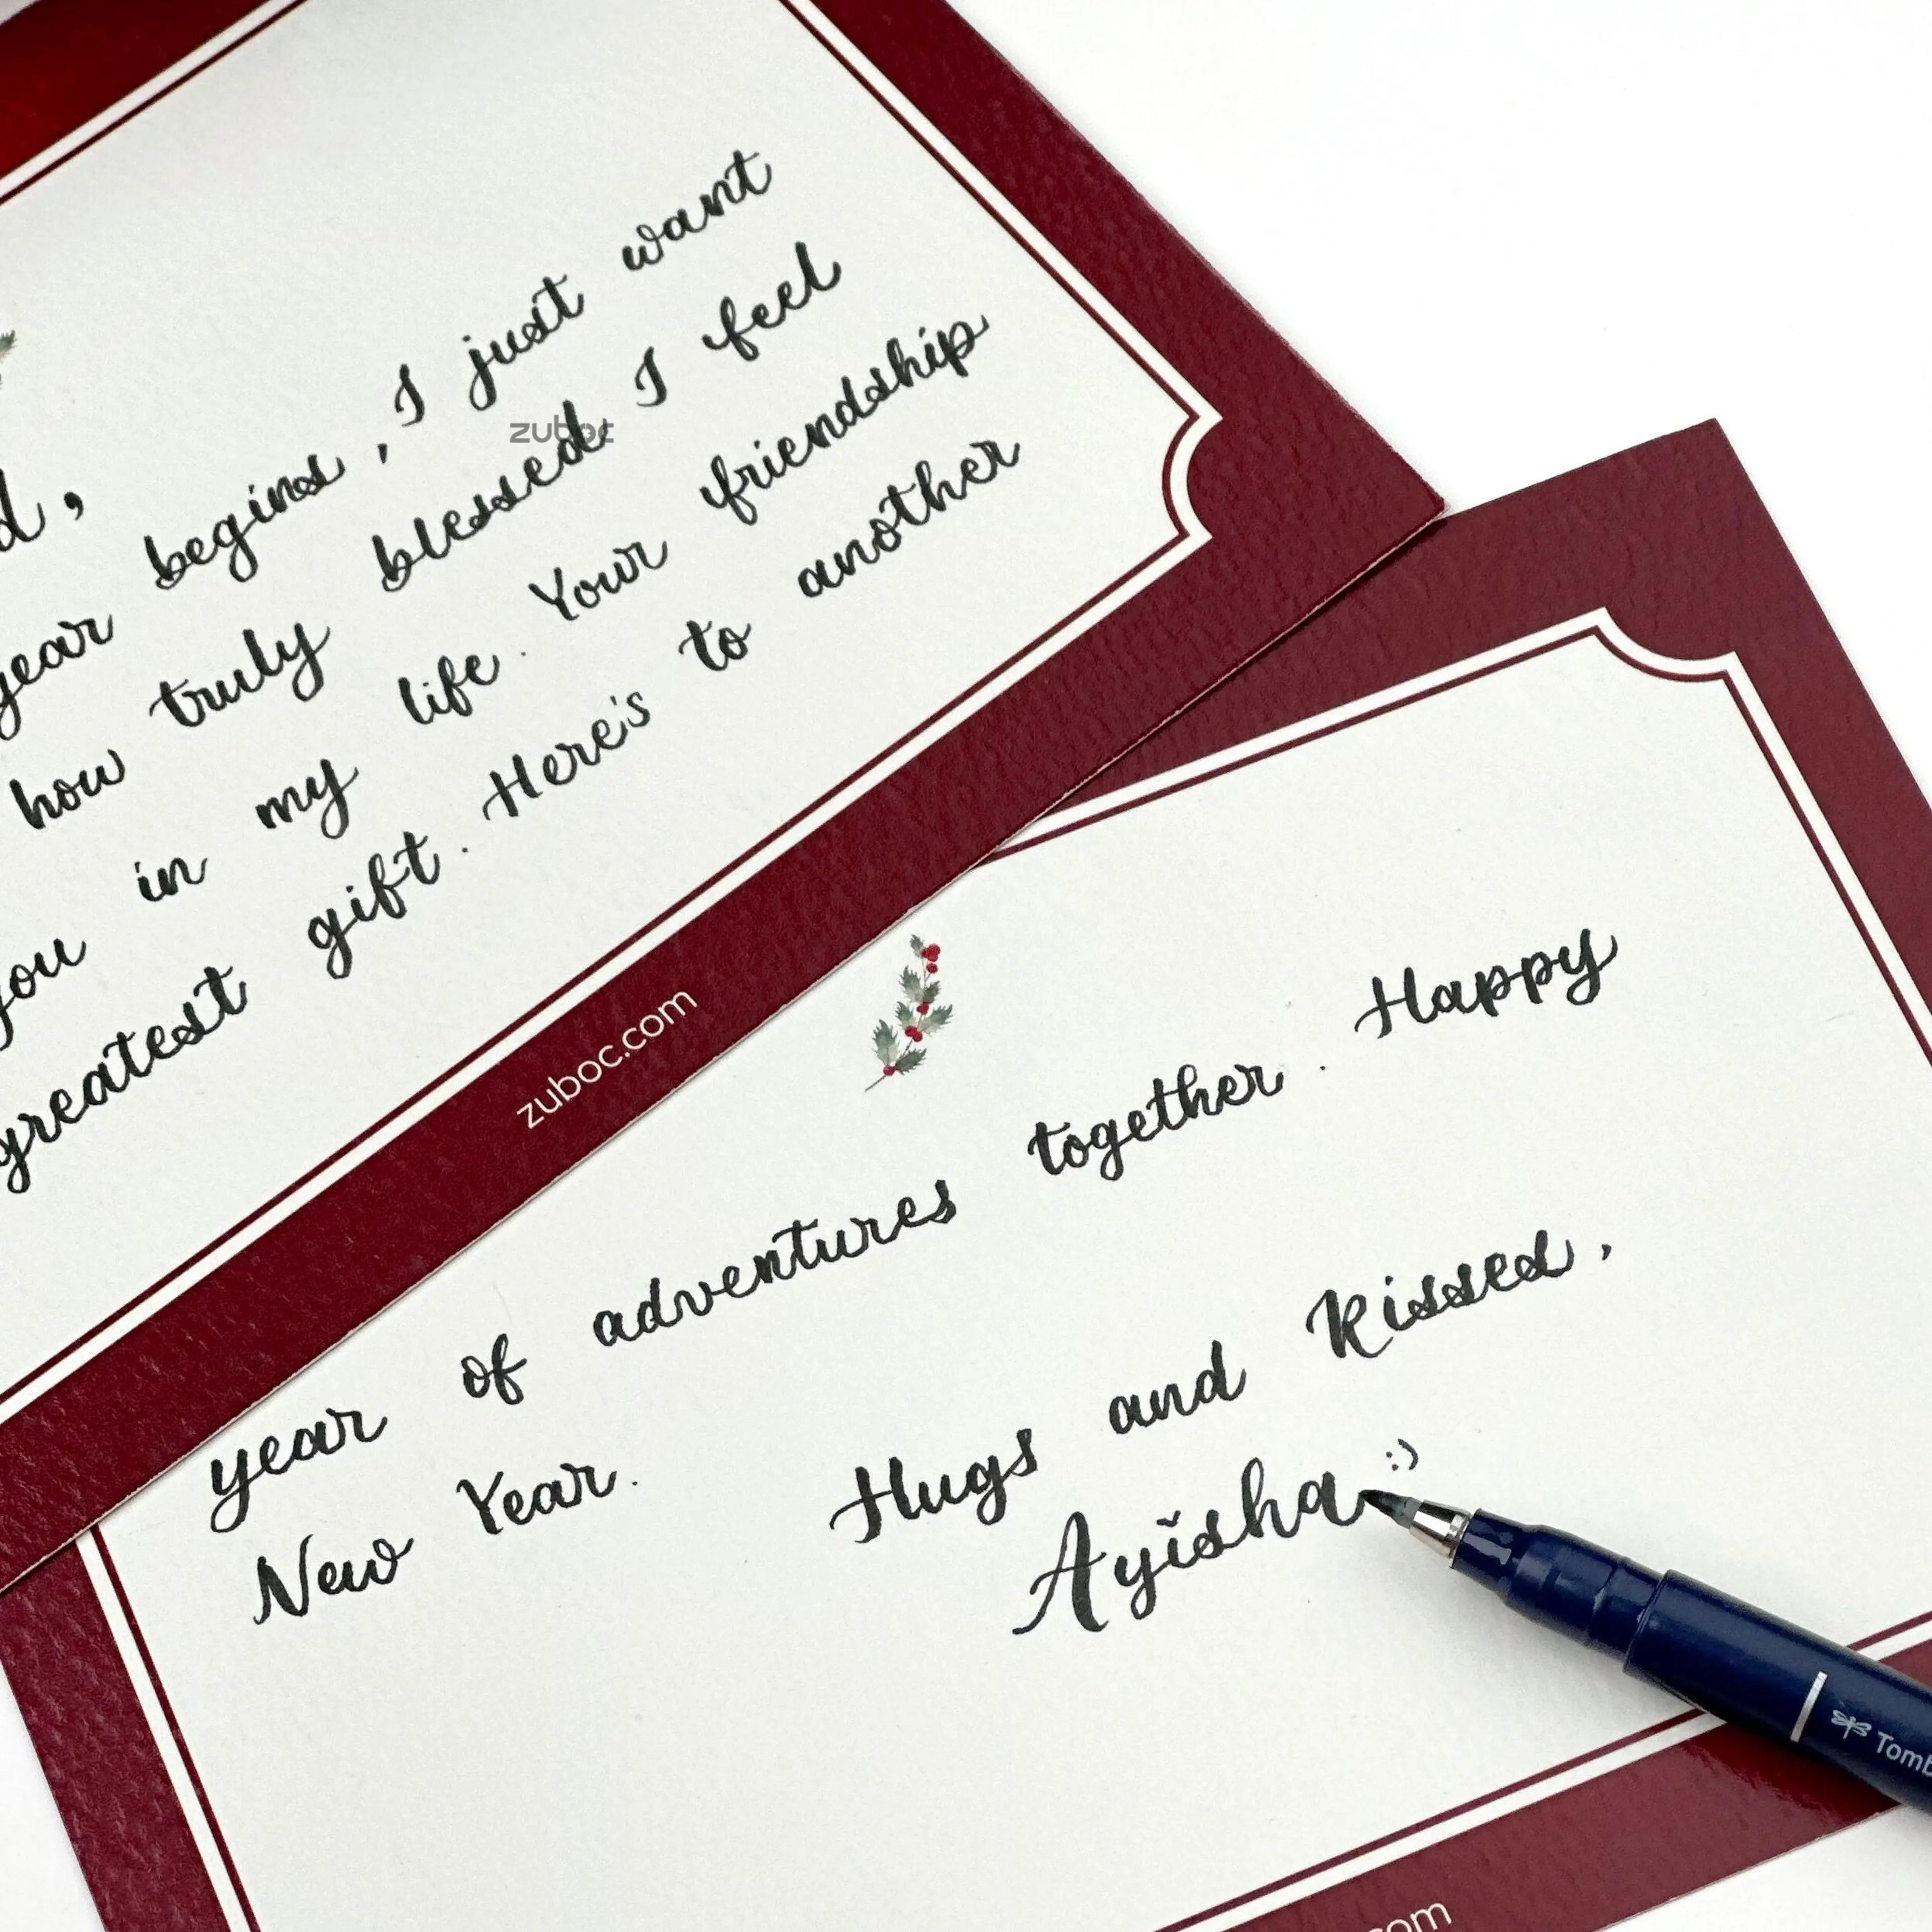 d,
year begins, I just want
how truly blessed I feel
you in my life. Your friendship
greatest gift. Here's to another
zuboc
zuboc.com
year of adventures together. Happy
New Year.
Hugs and Kisses,
Ayisha :)
Tomb
com